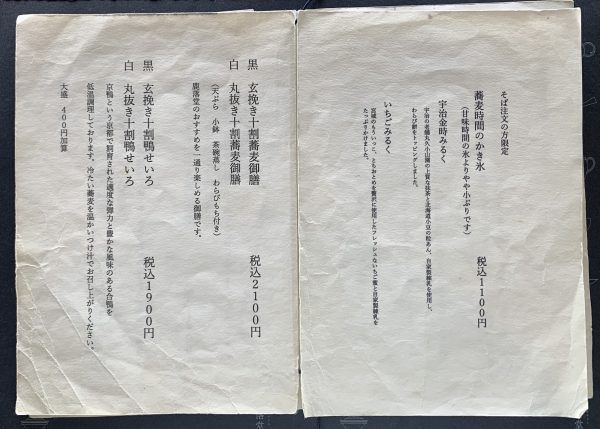 そば注文の方限定
蕎麦時間のかき氷　税込1100円
（甘味時間の氷よりやや小ぶりです）
宇治金時みるく
宇治の老舗丸久小山園の上質な抹茶と北海道小豆の粒あん、自家製練乳を使用し、
わらび餅をトッピングしました。
いちごみるく
宮城のもういっこ、とちおとめを贅沢に使用したフレッシュないちご蜜と自家製練乳を
たっぷりかけました。
黒　玄挽き十割蕎麦御膳
白　丸抜き十割蕎麦御膳　税込2100円
（天ぷら　小鉢　茶碗蒸し　わらびもち付き）
鹿落堂のおすすめを一通り楽しめる御膳です。
黒　玄挽き十割鴨せいろ
白　丸抜き十割鴨せいろ　税込1900円
京鴨という京都で飼育された適度な弾力と豊かな風味のある合鴨を
低温調理しております。冷たい蕎麦を温かいつけ汁でお召し上がりください。
大盛　400円加算